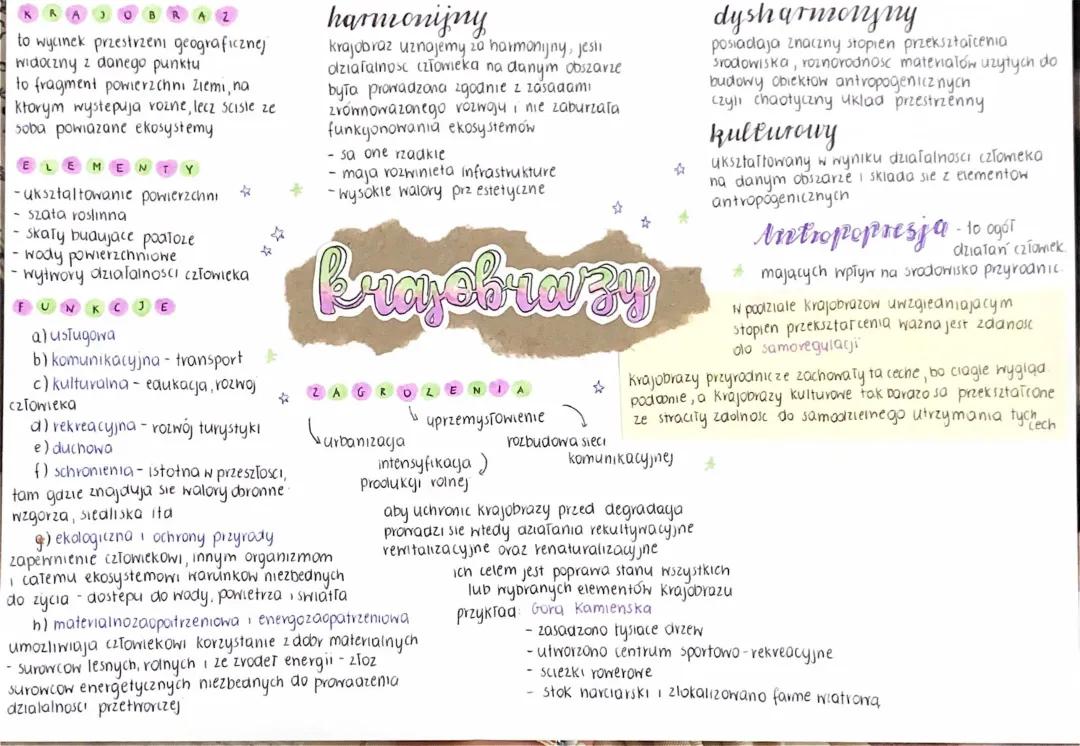 KRAJOBRAZ
to wycinek przestrzeni geograficznej
widoczny z danego punktu
to fragment powierzchni ziemi, na
ktorym wystepuja rozne, lecz scisle ze
soba powiazane ekosystemy
ELEMENTY
- ukształtowanie powierzchni
- szata roslinna
- skały budujace podłoze
- wody powierzchniowe
- wytwory działalnosci człowieka
FUNKCJE
a) usługowa
b) komunikacyjna - transport
c) kulturalna - edukacja, rozwoj
człowieka
d) rekreacyjna - rozwój turystyki
e) duchowa
f) schronienia - istotna w przeszłosci,
tam gdzie znajduja sie walory obronne
wzgorza, siedliska itd
g) ekologiczna i ochrony przyrady
zapewnienie człowiekowi, innym organizmom
i całemu ekosystemowi warunkow niezbednych
do zycia - dostepu do wody, powietrza i swiatła
h) materialnozaopatrzeniowa i energozaopatrzeniowa
umozliwiaja człowiekowi korzystanie z dobr materialnych
- surowcow lesnych, rolnych i ze zrodeł energii - złoz
surowcow energetycznych niezbednych do prowadzenia
działalnosci przetworczej
harmonijny
krajobraz uznajemy za harmonijny, jesli
działalnosc człowieka na danym obszarze
była prowadzona zgodnie z zasadami
zrównowazonego rozwoju i nie zaburzała
funkcjonowania ekosystemów
- sa one rzadkie
- maja rozwinieta infrastrukture
- wysokie walory prz estetyczne
krajobrazy
ZAGROZENIA
urbanizacja
uprzemysłowienie
intensyfikacja
produkcji rolnej
rozbudowa sieci
komunikacyjnej
aby uchronic krajobrazy przed degradacja
prowadzi sie wtedy działania rekultywacyjne
rewitalizacyjne oraz renaturalizacyjne
ich celem jest poprawa stanu wszystkich
lub wybranych elementów krajobrazu
przykład: Gora Kamienska
- zasadzono tysiace drzew
- utworzono centrum sportowo-rekreacyjne
- sciezki rowerowe
- stok narciarski i zlokalizowano farme wiatrowa
dysharmonijny
posiadaja znaczny stopien przekształcenia
srodowiska, roznorodnosc materiałow uzytych do
budowy obiektow antropogenicznych
czyli chaotyczny układ przestrzenny
kulturowy
ukształtowany w wyniku działalnosci człowieka
na danym obszarze i składa sie z elementow
antropogenicznych
Antropopresja - to ogół
działan człowiek
mających wpływ na srodowisko przyrodnic
w podziale krajobrazow uwzgledniajacym
stopien przekształcenia wazna jest zdolnosc
do samoregulacji
krajobrazy przyrodnicze zachowały ta ceche, bo ciagle wygląd.
podobnie, a krajobrazy kulturowe tak bardzo sa przekształcone
ze straciły zdolnosc do samodzielnego utrzymania tych
cech